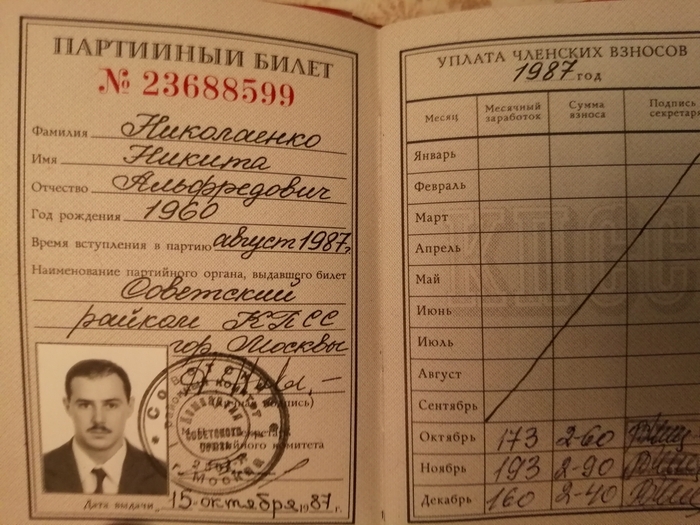 ПАРТИЙНЫЙ БИЛЕТ
№ 23688599
Фамилия Николаенко
Имя Никита
Отчество Альфредович
Год рождения 1960
Время вступления в партию август 1987г.
Наименование партийного органа, выдавшего билет
Советский
райком КПСС
гор. Москвы
(личная подпись)
г. Москва
Дата выдачи 15 октября 1987 г.
УПЛАТА ЧЛЕНСКИХ ВЗНОСОВ
1987 год
Месяц Месячный заработок Сумма взноса Подпись секретаря
КПСС
Январь
Февраль
Март
Апрель
Май
Июнь
Июль
Август
Сентябрь
Октябрь 173 2-60
Ноябрь 193 2-90
Декабрь 160 2-40